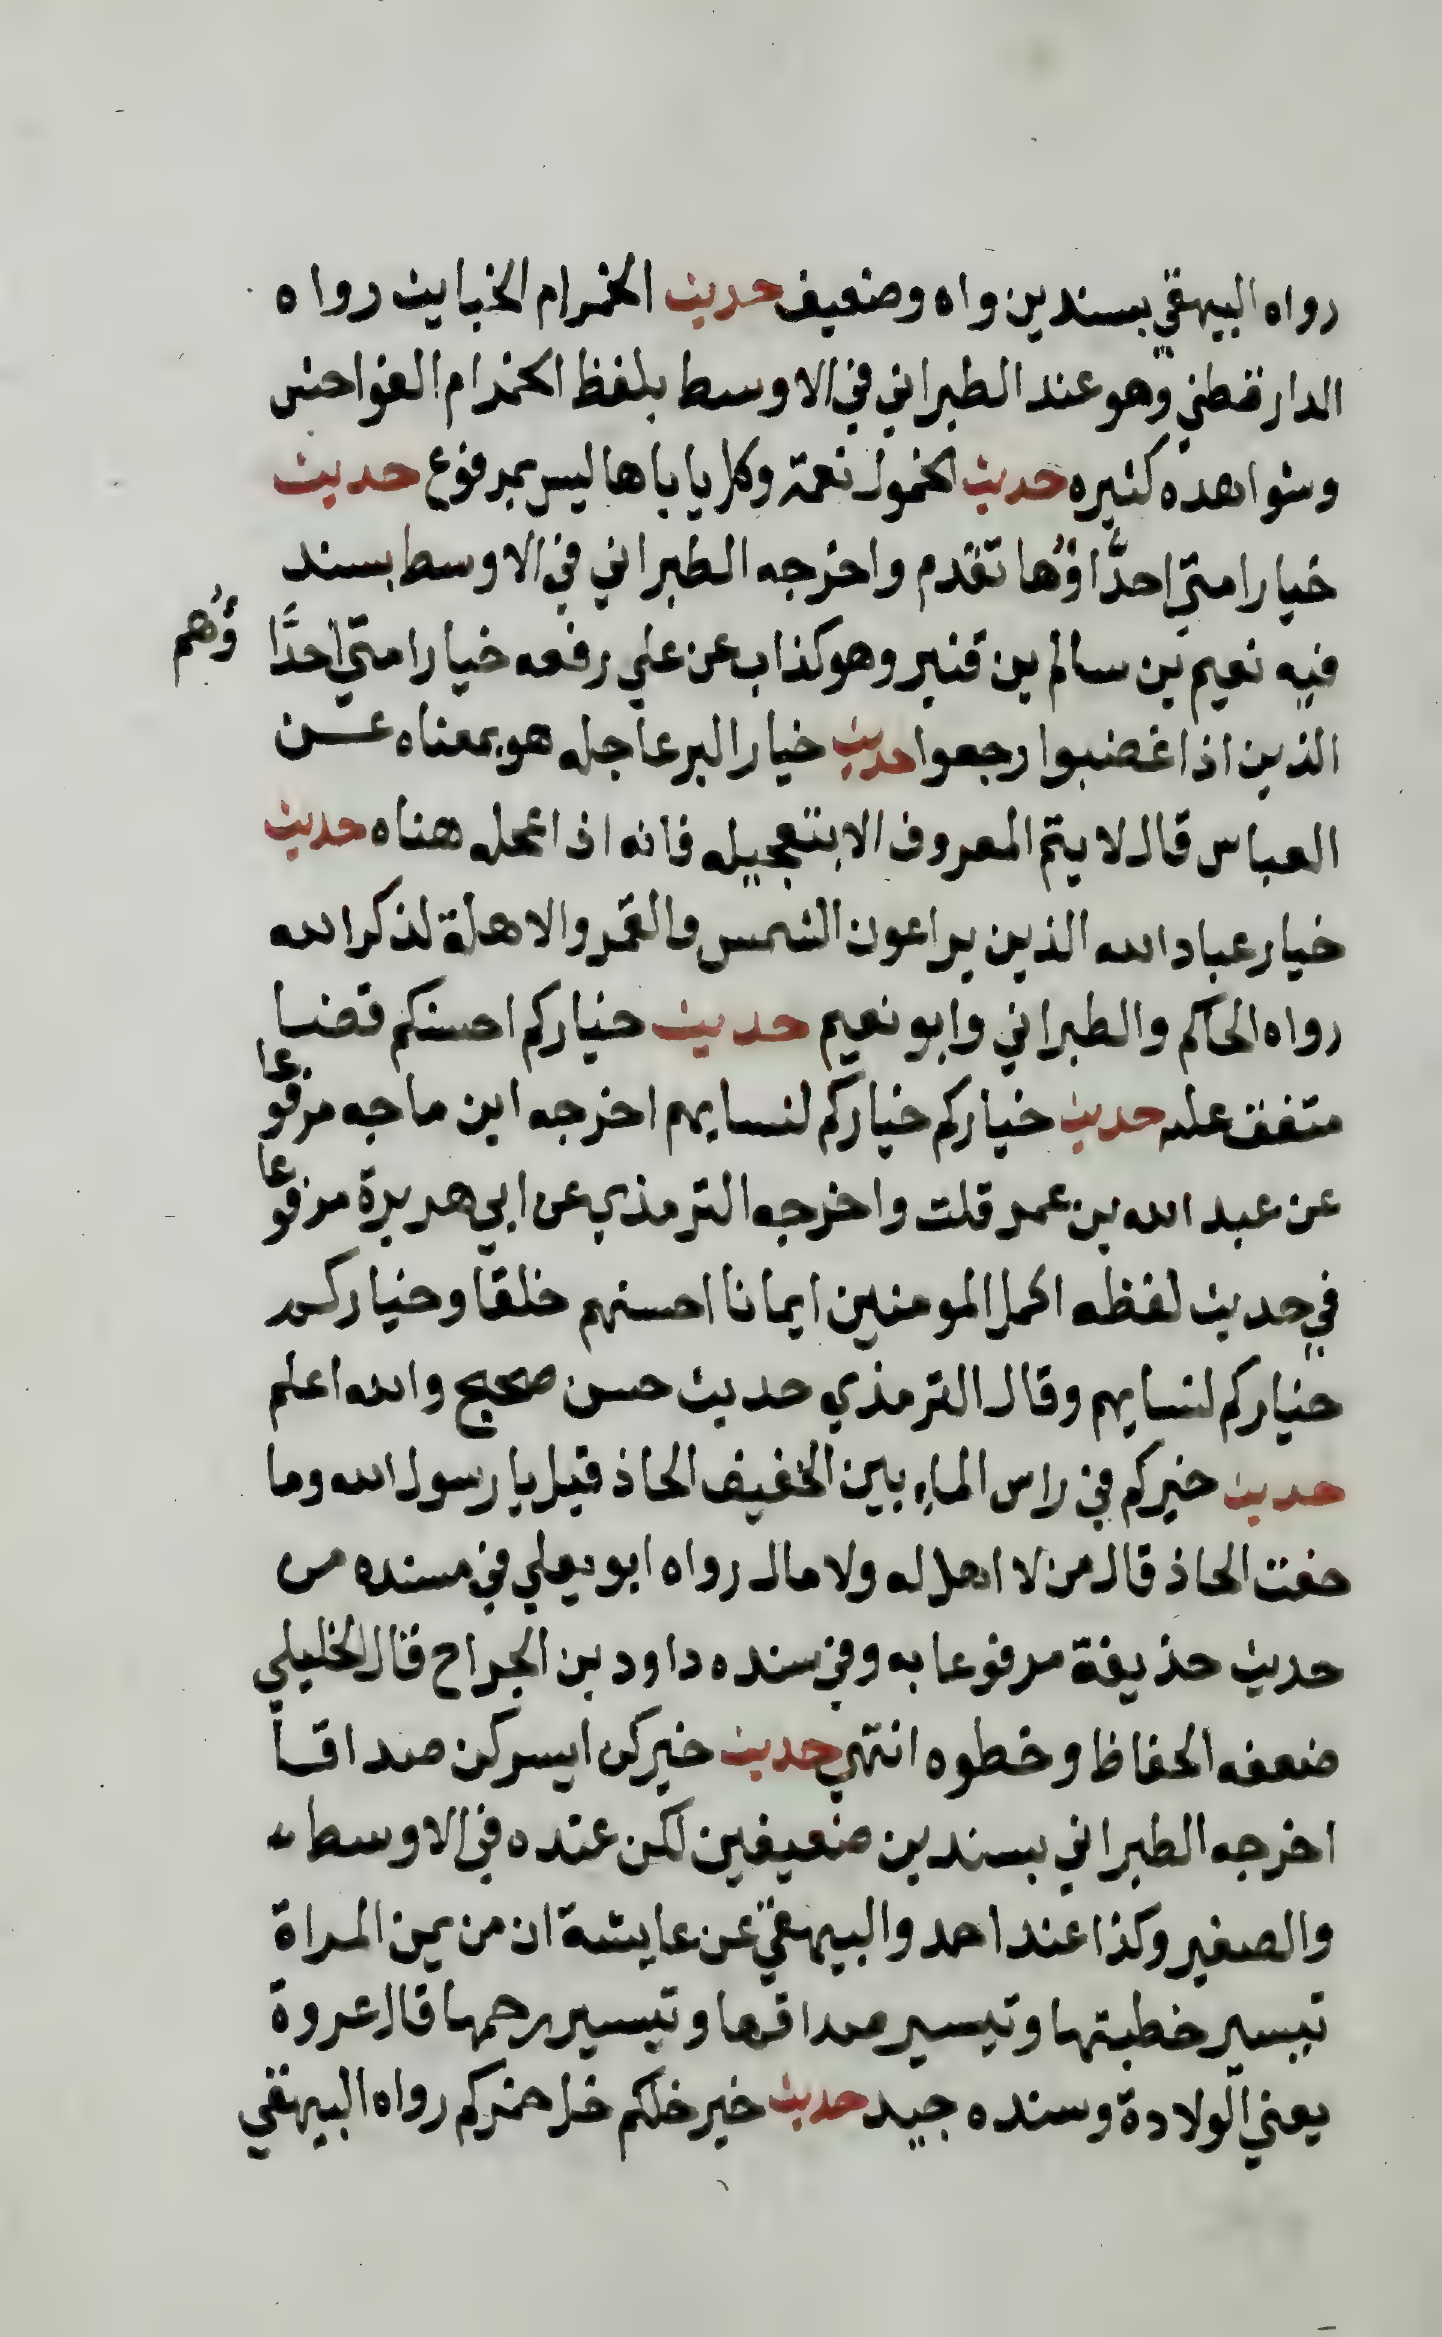 رواه البيهقي بسندين واه وضعيف حديث الخمر ام الخبايث رواه
الدارقطني وهو عند الطبراني في الاوسط بلفظ الخمر ام الفواحش
وشواهده كثيره حديث الخمول نعمة وكل ياباها ليس بمرفوع حديث
خيار امتي احدّاوُها تقدم واخرجه الطبراني في الاوسط بسند
فيه نعيم بن سالم بن قنبر وهو كذاب عن علي رفعه خيار امتي احدَّا
وُهم
الذين اذا غضبوا رجعوا حديث خيار البر عاجله هو بمعناه عن
العباس قال لا يتم المعروف الا بتعجيله فانه اذا عجله هناه حديث
خيار عباد الله الذين يراعون الشمس والقمر والاهلة لذكر الله
رواه الحاكم والطبراني وابو نعيم حديث خياركم احسنكم قضا
متفق عليه حديث خياركم خياركم لنسايهم اخرجه ابن ماجه مرفوعا
عن عبد الله بن عمر قلت واخرجه الترمذي عن ابي هريرة مرفوعا
في حديث لفظه اكمل المومنين ايمانا احسنهم خلقا وخياركم
خياركم لنسايهم وقال الترمذي حديث حسن صحيح والله اعلم
حديث خيركم في راس المايتين الخفيف الحاذ قيل يا رسول الله وما
خفت الحاذ قال من لا اهل له ولا مال رواه ابو يعلي في مسنده من
حديث حذيفة مرفوعا به وفي سنده داود بن الجراح قال الخليلي
ضعفه الحفاظ وخطوه انتهي حديث خيركن ايسركن صداقا
اخرجه الطبراني بسندين ضعيفين لكن عنده في الاوسط
والصغير وكذا عند احمد والبيهقي عن عايشة ان من يمن المراة
تيسير خطبتها وتيسير صداقها وتيسير رحمها قال عروة
يعني الولادة وسنده جيد حديث خير خلكم خل خمركم رواه البيهقي